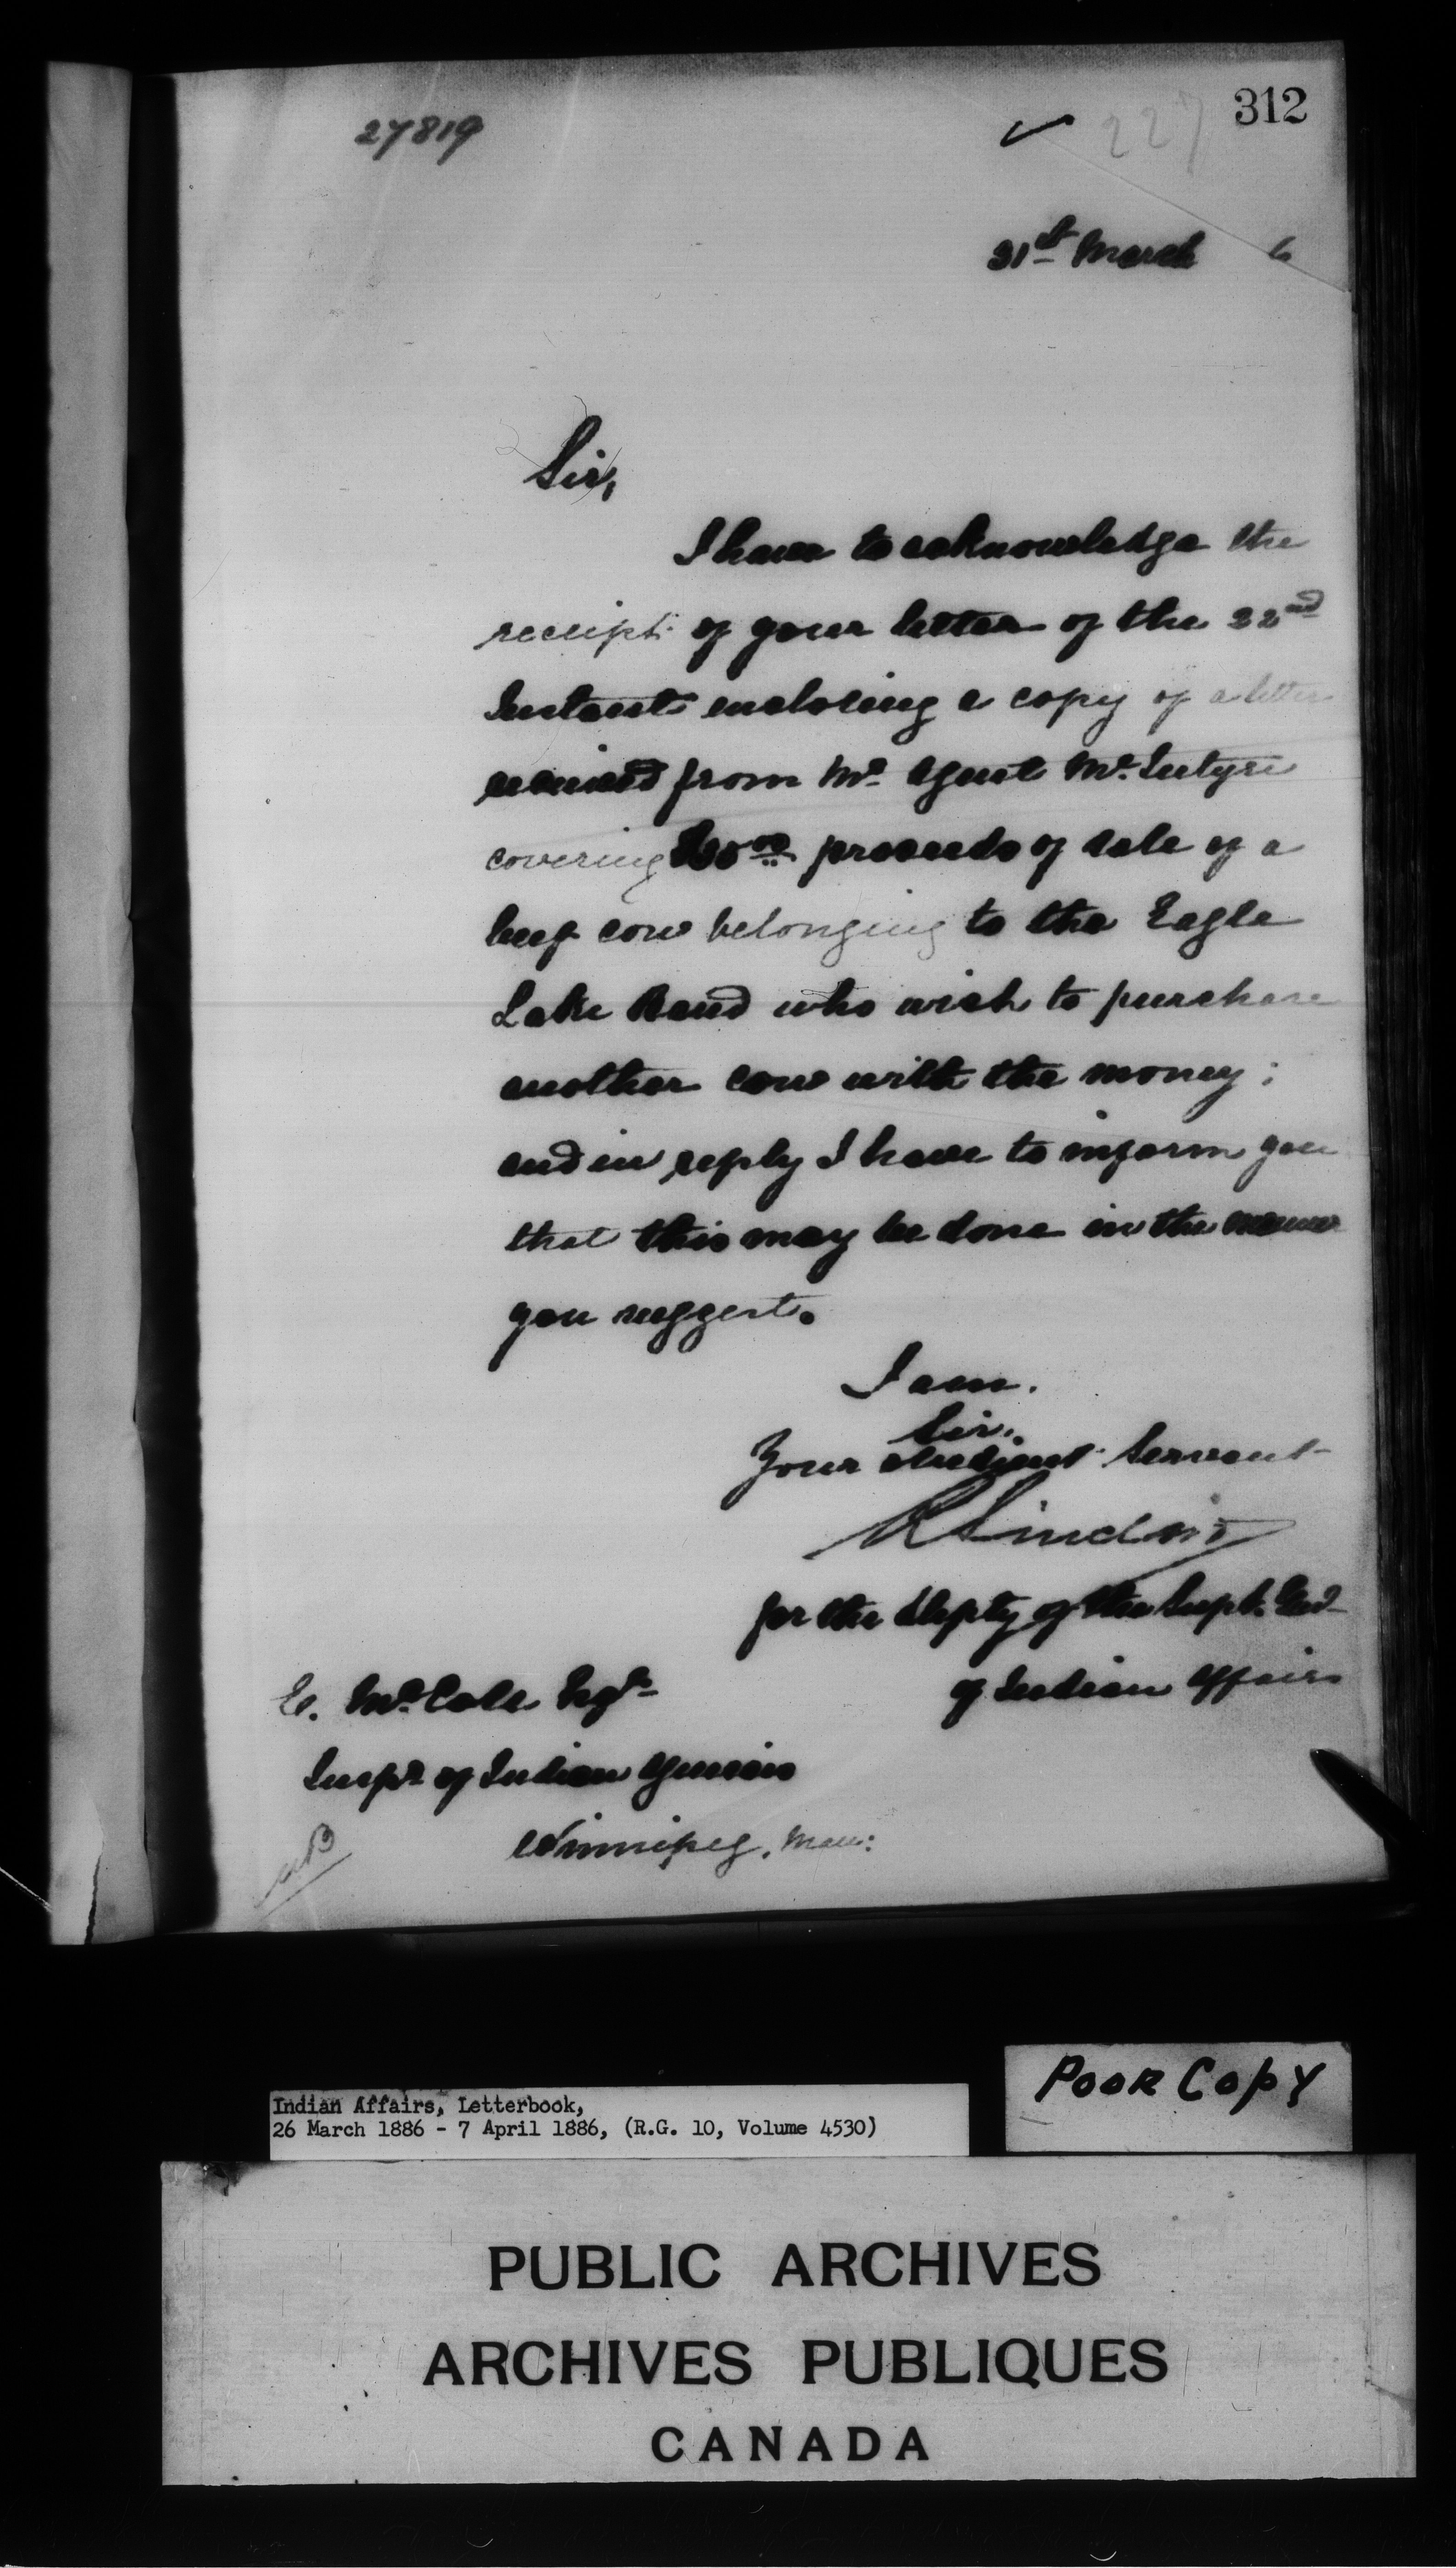 312
27819
227
31st March 6
Sir,
I have to acknowledge the
receipt of your letter of the 22nd
Instant enclosing a copy of a letter
received from Mr. Agent McIntyre
covering proceeds of sale of a
beef cow belonging to the Eagle
Lake Band who wish to purchase
another cow with the money;
and in reply I have to inform you
that this may be done in the manner
you suggest.
I am.
Sir.
Your obedient Servant
R Sinclair
for the Depty of the Supt. Genl
of Indian Affairs
E. McColl Esqr
Inspr of Indian Agencies
Winnipeg, Man:
Poor Copy
Indian Affairs, Letterbook,
26 March 1886 - 7 April 1886, (R.G. 10, Volume 4530)
PUBLIC ARCHIVES
ARCHIVES PUBLIQUES
CANADA